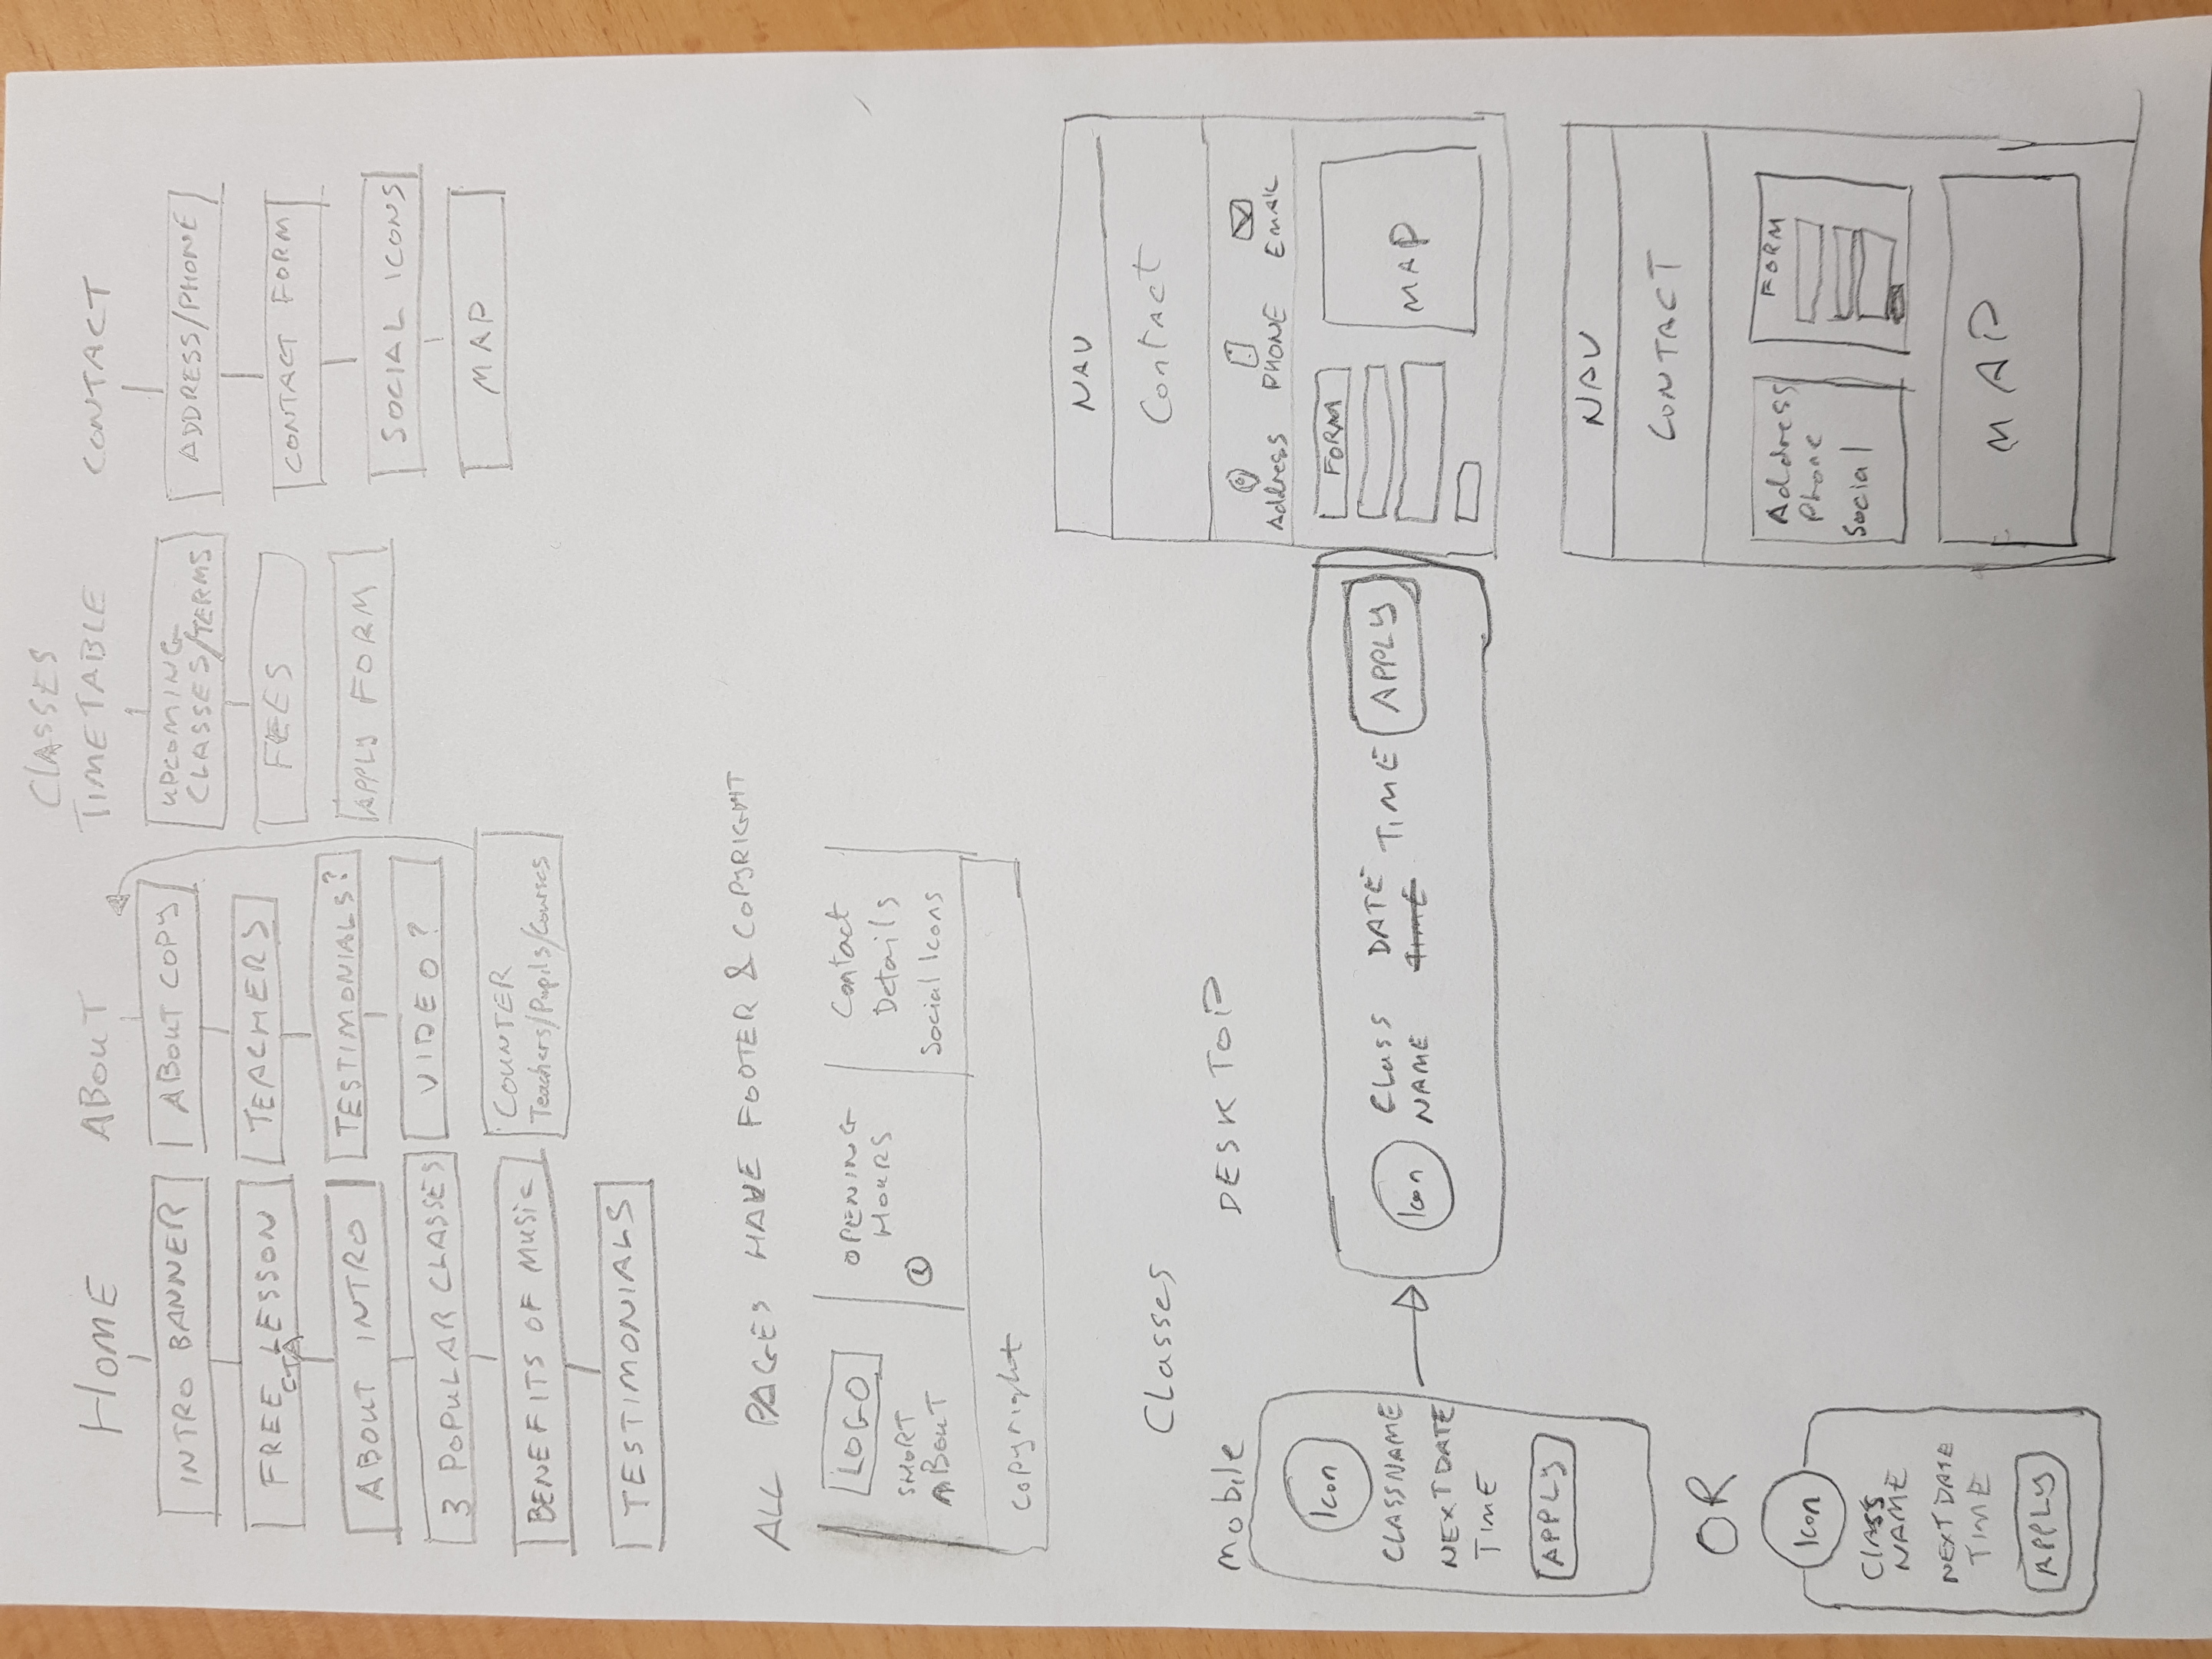 HOME
INTRO BANNER
FREE LESSON
CTA
ABOUT INTRO
3 POPULAR CLASSES
BENEFITS OF MUSIC
TESTIMONIALS
ABOUT
ABOUT COPY
TEACHERS
TESTIMONIALS?
VIDEO?
COUNTER
Teachers/Pupils/Courses
CLASSES
TIMETABLE
UPCOMING
CLASSES/TERMS
FEES
APPLY FORM
CONTACT
ADDRESS/PHONE
CONTACT FORM
SOCIAL ICONS
MAP
ALL PAGES HAVE FOOTER & COPYRIGHT
LOGO
SHORT
ABOUT
OPENING
HOURS
Contact
Details
Social Icons
Copyright
Classes
Mobile
Icon
CLASSNAME
NEXT DATE
TIME
APPLY
OR
Icon
Class
NAME
NEXT DATE
TIME
APPLY
DESKTOP
Icon
CLASS
NAME
DATE
TIME
TIME
APPLY
NAV
Contact
Address PHONE EMAIL
FORM
MAP
NAV
CONTACT
Address
Phone
Social
FORM
MAP